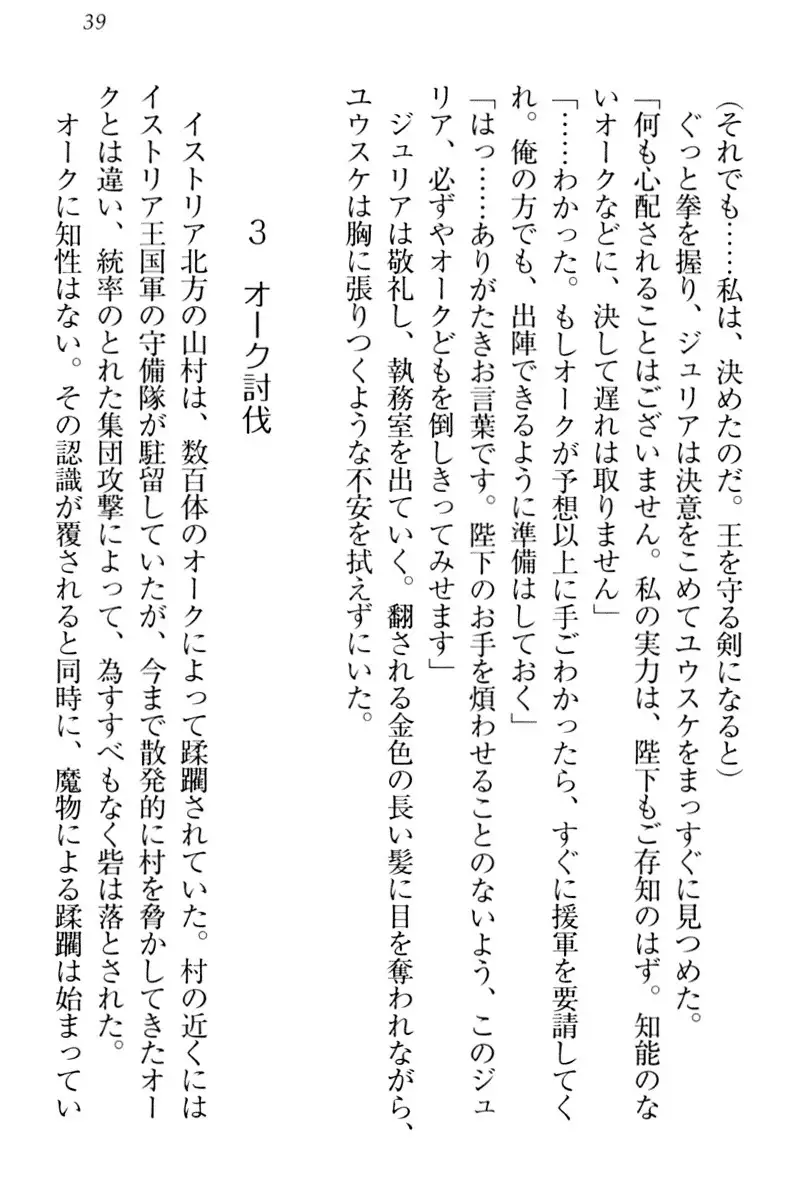 39
(それでも……私は、決めたのだ。王を守る剣になると)
ぐっと拳を握り、ジュリアは決意をこめてユウスケをまっすぐに見つめた。
「何も心配されることはございません。私の実力は、陛下もご存知のはず。知能のな
いオークなどに、決して遅れは取りません」
「……わかった。もしオークが予想以上に手ごわかったら、すぐに援軍を要請してく
れ。俺の方でも、出陣できるように準備はしておく」
「はっ……ありがたきお言葉です。陛下のお手を煩わせることのないよう、このジュ
リア、必ずやオークどもを倒しきってみせます」
ジュリアは敬礼し、執務室を出ていく。翻される金色の長い髪に目を奪われながら、
ユウスケは胸に張りつくような不安を拭えずにいた。
3 オーク討伐
イストリア北方の山村は、数百体のオークによって蹂躙されていた。村の近くには
イストリア王国軍の守備隊が駐留していたが、今まで散発的に村を脅かしてきたオー
クとは違い、統率のとれた集団攻撃によって、為すすべもなく砦は落とされた。
オークに知性はない。その認識が覆されると同時に、魔物による蹂躙は始まってい